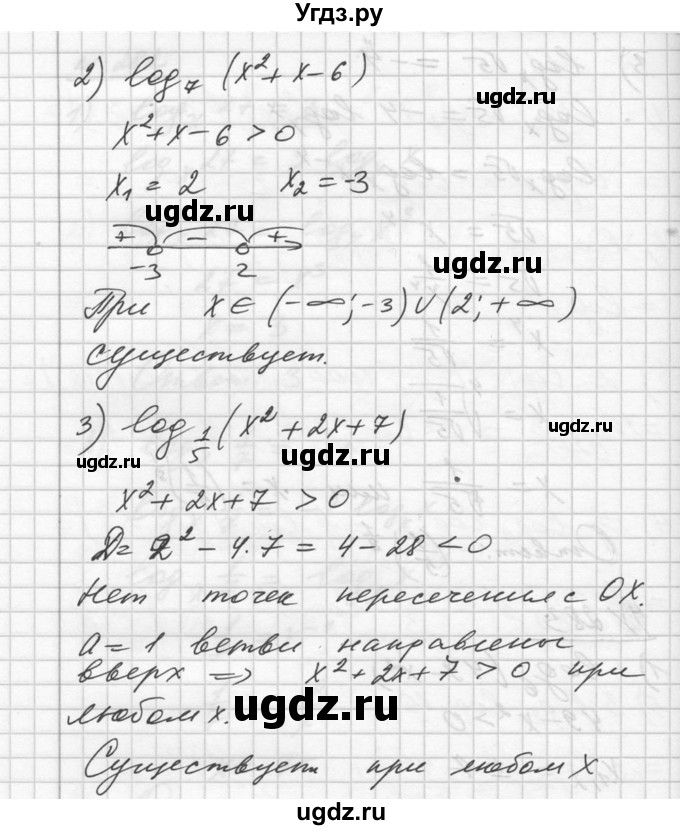 Угдз.ру
2) log₇ (x² + x - 6)
ugdz.ru
x² + x - 6 > 0
x₁ = 2 x₂ = -3
ugdz.ru
+ - +
-3 2
ugdz.ru
При x ∈ (-∞; -3) ∪ (2; +∞)
существует.
3) log_{1/5} (x² + 2x + 7)
ugdz.ru
ugdz.ru
ugdz.ru
x² + 2x + 7 > 0
D = 2² - 4·7 = 4 - 28 < 0
Нет точек пересечения с OX.
a = 1 ветви направлены
вверх => x² + 2x + 7 > 0 при
любом x.
ugdz.ru
Существует при любом x
ugdz.ru